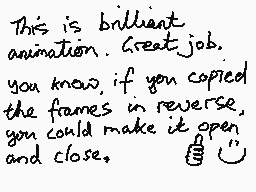 This is brilliant
animation. Great job.
you know, if you copied
the frames in reverse,
you could make it open
and close.